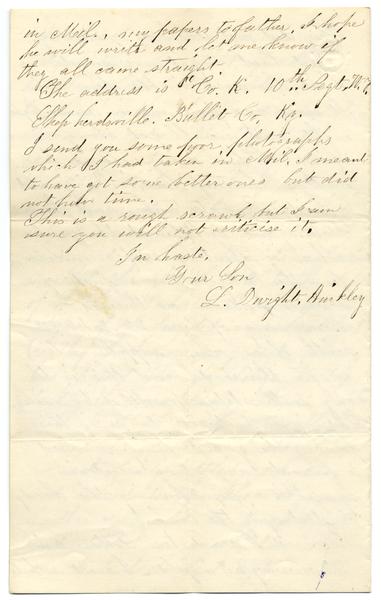 in Mil., my papers to father. I hope
he will write and let me know if
they all came straight.
The address is "Co. K. 10th Regt,
Shepherdsville. Bullet Co, Ky.
I send you some poor, photographs
which I had taken in Mil. I meant
to have got some better ones but did
not have time.
This is a rough scrawl, but I am
sure you will not criticise it.
In haste.
Your Son
L. Dwight, Hinkley